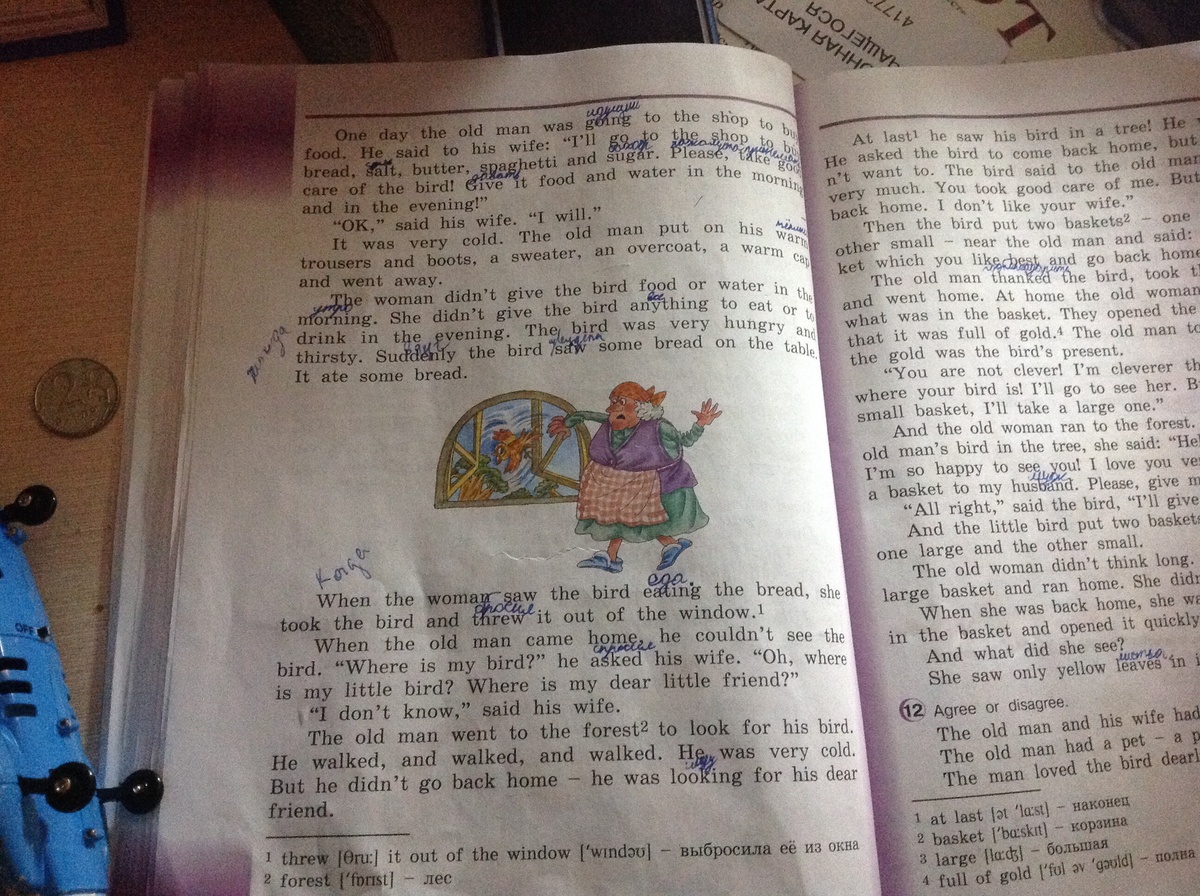 ОННАЯ КАРТА
АЩЕГОСЯ
4177
One day the old man was going to the shop to bu
food. He said to his wife: “I’ll go to the shop to bu
bread, salt, butter, spaghetti and sugar. Please, take goo
care of the bird! Give it food and water in the morning
and in the evening!”
“OK,” said his wife. “I will.”
It was very cold. The old man put on his warm
trousers and boots, a sweater, an overcoat, a warm cap
and went away.
The woman didn’t give the bird food or water in the
утро
morning. She didn’t give the bird anything to eat or to
drink in the evening. The bird was very hungry and
thirsty. Suddenly the bird saw some bread on the table.
It ate some bread.
Когда
еда
When the woman saw the bird eating the bread, she
took the bird and threw it out of the window.¹
When the old man came home, he couldn’t see the
bird. “Where is my bird?” he asked his wife. “Oh, where
is my little bird? Where is my dear little friend?”
“I don’t know,” said his wife.
The old man went to the forest² to look for his bird.
He walked, and walked, and walked. He was very cold.
But he didn’t go back home – he was looking for his dear
friend.
1 threw [θru:] it out of the window ['wɪndəʊ] – выбросила её из окна
2 forest ['fɒrɪst] – лес
At last¹ he saw his bird in a tree! He
He asked the bird to come back home, but
n’t want to. The bird said to the old man
very much. You took good care of me. But
back home. I don’t like your wife.”
Then the bird put two baskets² – one
other small – near the old man and said:
ket which you like best and go back home
The old man thanked the bird, took t
and went home. At home the old woman
what was in the basket. They opened the
that it was full of gold.⁴ The old man to
the gold was the bird’s present.
“You are not clever! I’m cleverer th
where your bird is! I’ll go to see her. B
small basket, I’ll take a large one.”
And the old woman ran to the forest.
old man’s bird in the tree, she said: “He
I’m so happy to see you! I love you ve
муж
a basket to my husband. Please, give m
“All right,” said the bird, “I’ll give
And the little bird put two baskets
one large and the other small.
The old woman didn’t think long.
large basket and ran home. She didn
When she was back home, she wa
in the basket and opened it quickly
And what did she see?
She saw only yellow leaves in i
12 Agree or disagree.
The old man and his wife had
The old man had a pet – a p
The man loved the bird dearl
1 at last [ət 'lɑ:st] – наконец
2 basket ['bɑ:skɪt] – корзина
3 large [lɑ:dʒ] – большая
4 full of gold ['fʊl əv 'gəʊld] – полна
OFF